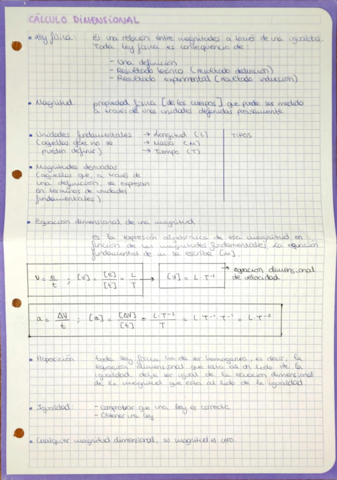 CÁLCULO DIMENSIONAL
• Ley física: Es una relación entre magnitudes a través de una igualdad.
Toda ley física es consecuencia de:
- Una definición
- Resultado teórico (resultado deducción)
- Resultado experimental (resultado inducción)
• Magnitud: propiedad física [de los cuerpos] que puede ser medida
a través de unas unidades definidas previamente.
• Unidades fundamentales → Longitud (L) TIPOS
(aquellas que no se → Masa (M)
pueden definir) → Tiempo (T)
• Magnitudes derivadas
(aquellas que, a través de
una definición, se expresan
en términos de unidades
fundamentales)
• Ecuación dimensional de una magnitud:
es la expresión algebraica de esa magnitud en
función de las magnitudes fundamentales. La ecuación
fundamental de m se escribe [m].
v = e/t ; [v] = [e]/[t] = L/T → [v] = L·T⁻¹ → ecuación dimensional
de velocidad
a = ΔV/t ; [a] = [ΔV]/[t] = L·T⁻¹/T = L·T⁻¹·T⁻¹ = L·T⁻²
• toda ley física ha de ser homogénea, es decir, la
ecuación dimensional que está a un lado de la
igualdad, debe ser igual de la ecuación dimensional
de la magnitud que está al lado de la igualdad.
• - comprobar que una ley es correcta
- Obtener una ley
• Cualquier magnitud dimensional, su magnitud es cero.